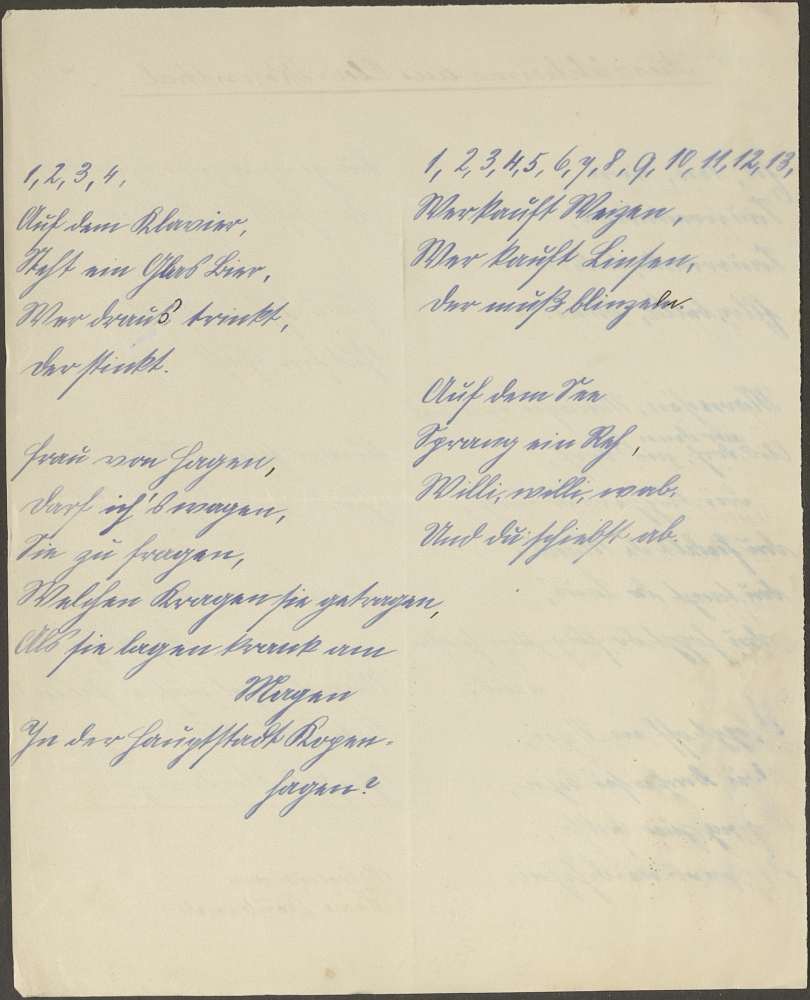 1, 2, 3, 4,
Auf dem Klavier,
Steht ein Glas Bier,
Wer draus trinkt,
Der stinkt.
Frau von Hagen,
Darf ich's wagen,
Sie zu fragen,
Welchen Kragen sie getragen,
Als sie lagen krank am
Magen
In der Hauptstadt Kopen-
hagen?
1, 2, 3, 4, 5, 6, 7, 8, 9, 10, 11, 12, 13,
Wer kauft Weizen,
Wer kauft Linsen,
Der muß blinzeln.
Auf dem See
Sprang ein Reh,
Willi, willi, wab,
Und du schiebst ab.